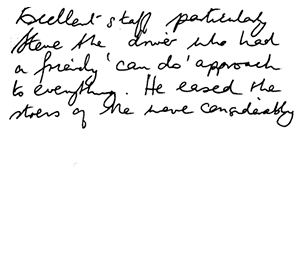 Excellent staff particularly
Steve the driver who had
a friendly 'can do' approach
to everything. He eased the
stress of the move considerably